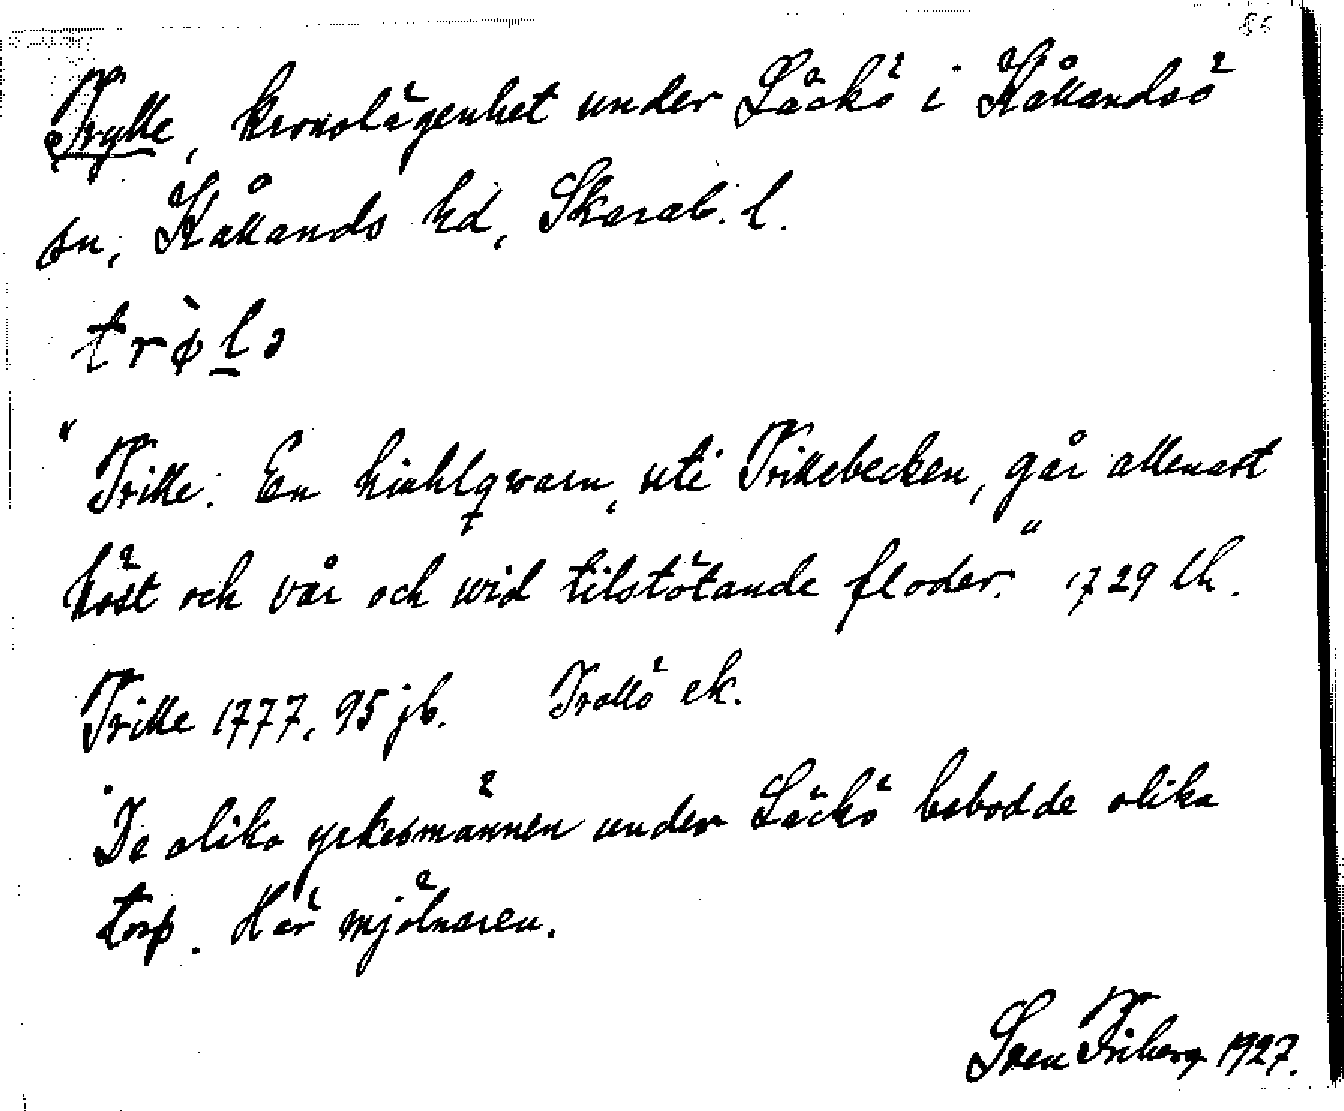 86
Trylle, kronolägenhet under Läckö i Kållandsö
sn, Kållands hd, Skarab. l.
trø̀lə
"Trille. En hiuhlqwarn, uti Trillebecken, går allenast
höst och vår och wid tilstötande floder." 1729 lh.
Trille 1777, 95 jb. Trollö ek.
De olika yrkesmännen under Läckö bebodde olika
torp. Här mjölnaren.
Sven Friberg 1927.